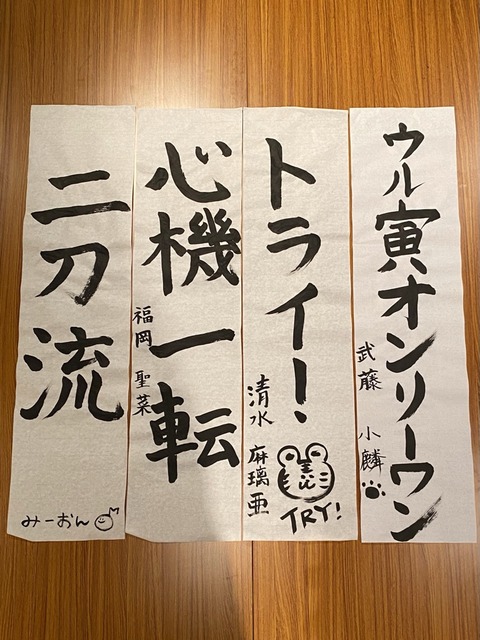 ウル寅オンリーワン
武藤 小麟
トライ!
清水 麻璃亜
TRY!
心機一転
福岡 聖菜
二刀流
みーおん